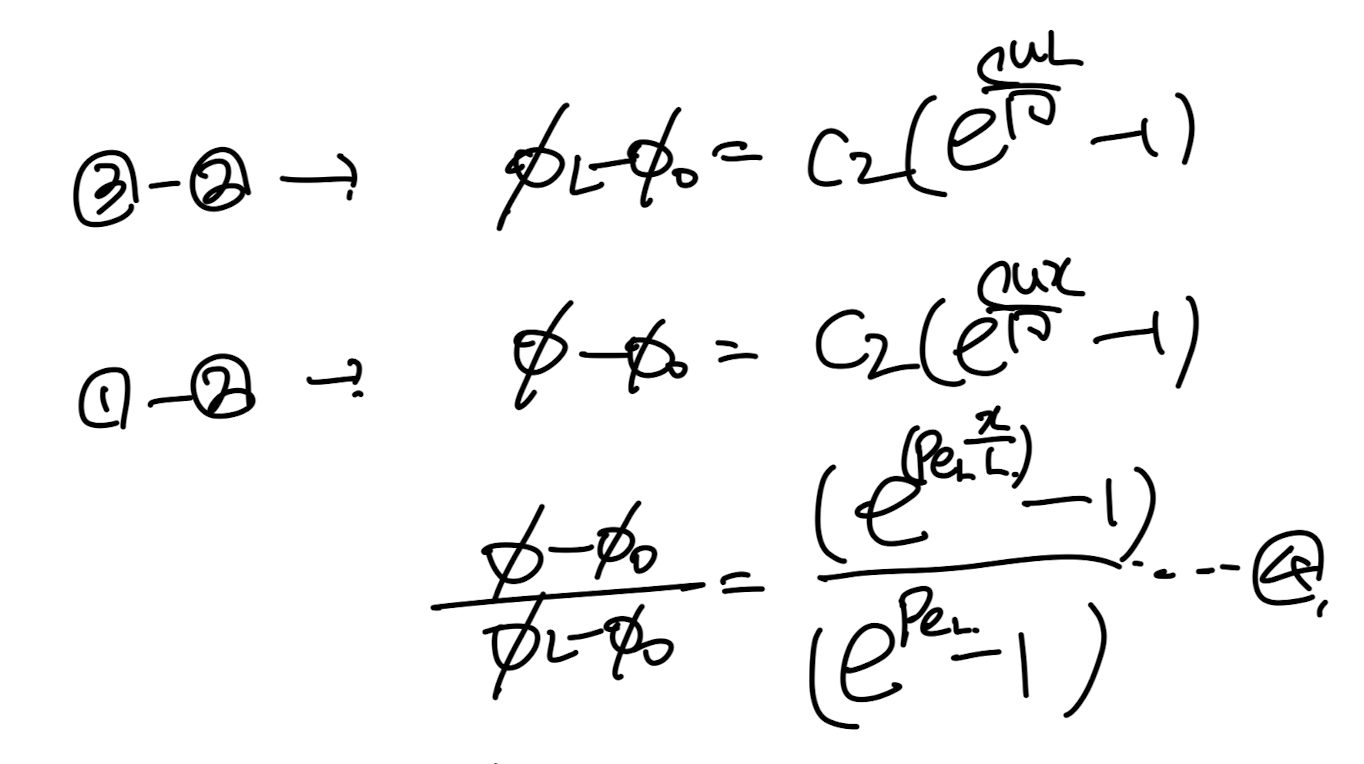 ③-② → φL-φ0 = C2(e^(ρuL/Γ) -1)
①-② → φ-φ0 = C2(e^(ρux/Γ) -1)
(φ-φ0)/(φL-φ0) = (e^(PeL x/L) -1)/(e^PeL -1) ----④